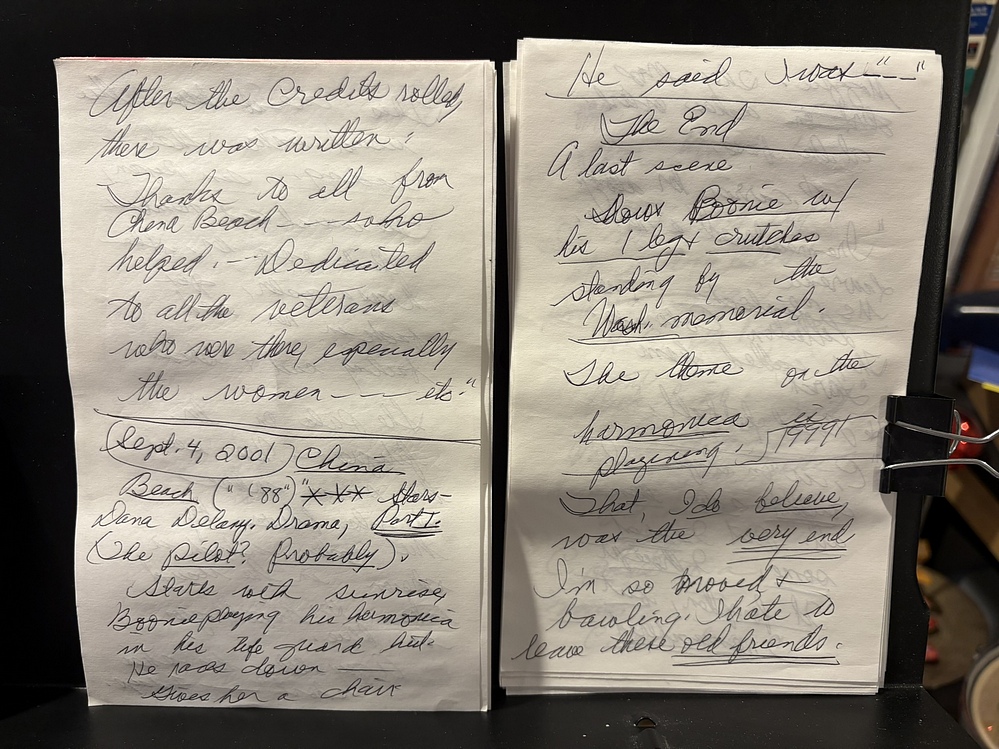 After the Credits rolled,
there was written:
Thanks to all from
China Beach --- who
helped. -- Dedicated
to all the veterans
who were there, especially
the women --- etc."
Sept. 4, 2001 China
Beach ("'88") "*** Stars-
Dana Delany. Drama, Part I.
(The pilot? Probably).
Starts with sunrise,
Boonie playing his harmonica
in his life guard hut.
He races down ---
Gives her a chair
He said I was "---"
The End
A last scene
shows Boonie w/
his 1 leg & crutches
standing by the
Wash. memorial.
The theme on the
harmonica is
playining. 1999!
That, I do believe,
was the very end
I'm so moved &
bawling. I hate to
leave these old friends.